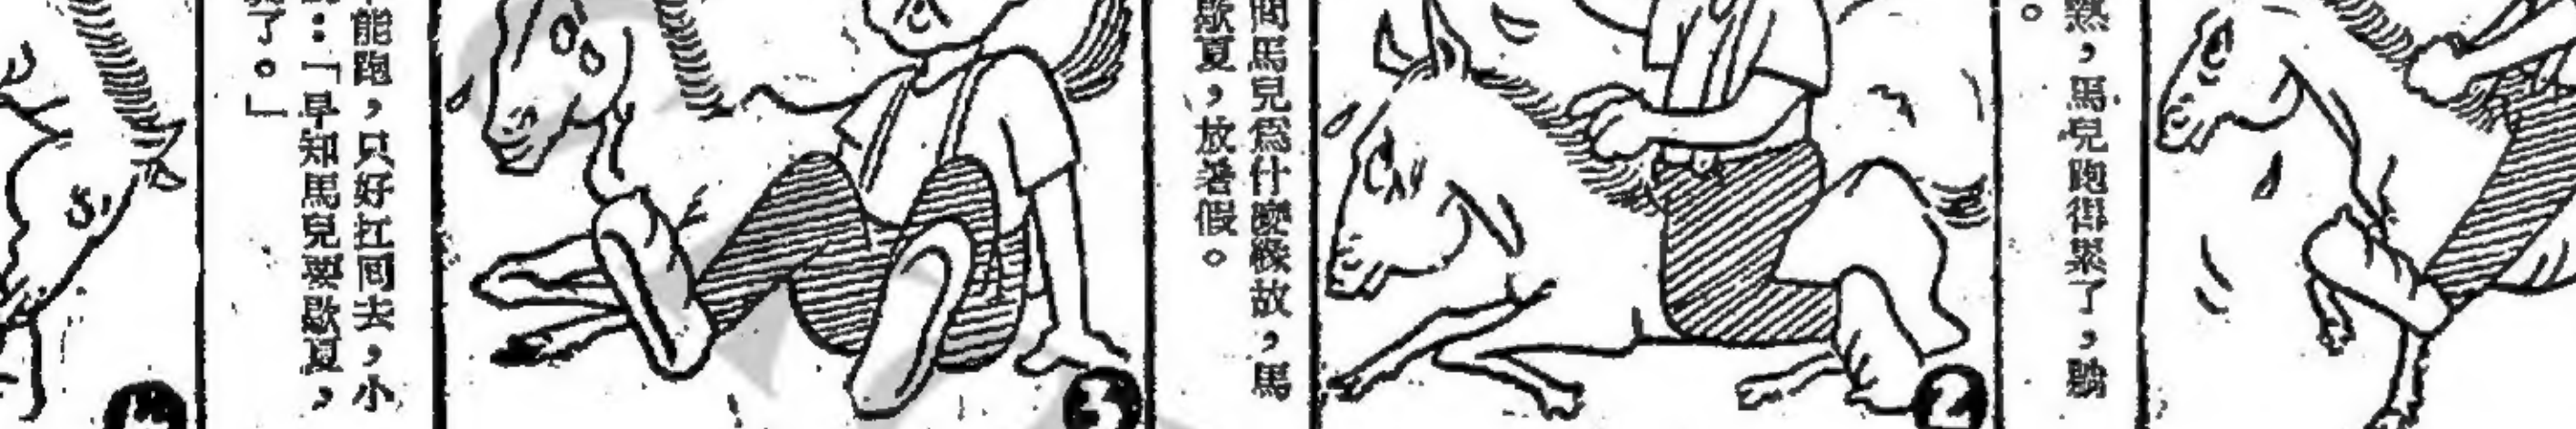 熱，馬兒跑得累了，躺
。
問馬兒爲什麼緣故，馬
歇夏，放暑假。
能跑，只好扛回去，小
：「早知馬兒要歇夏，
了。」
2
3